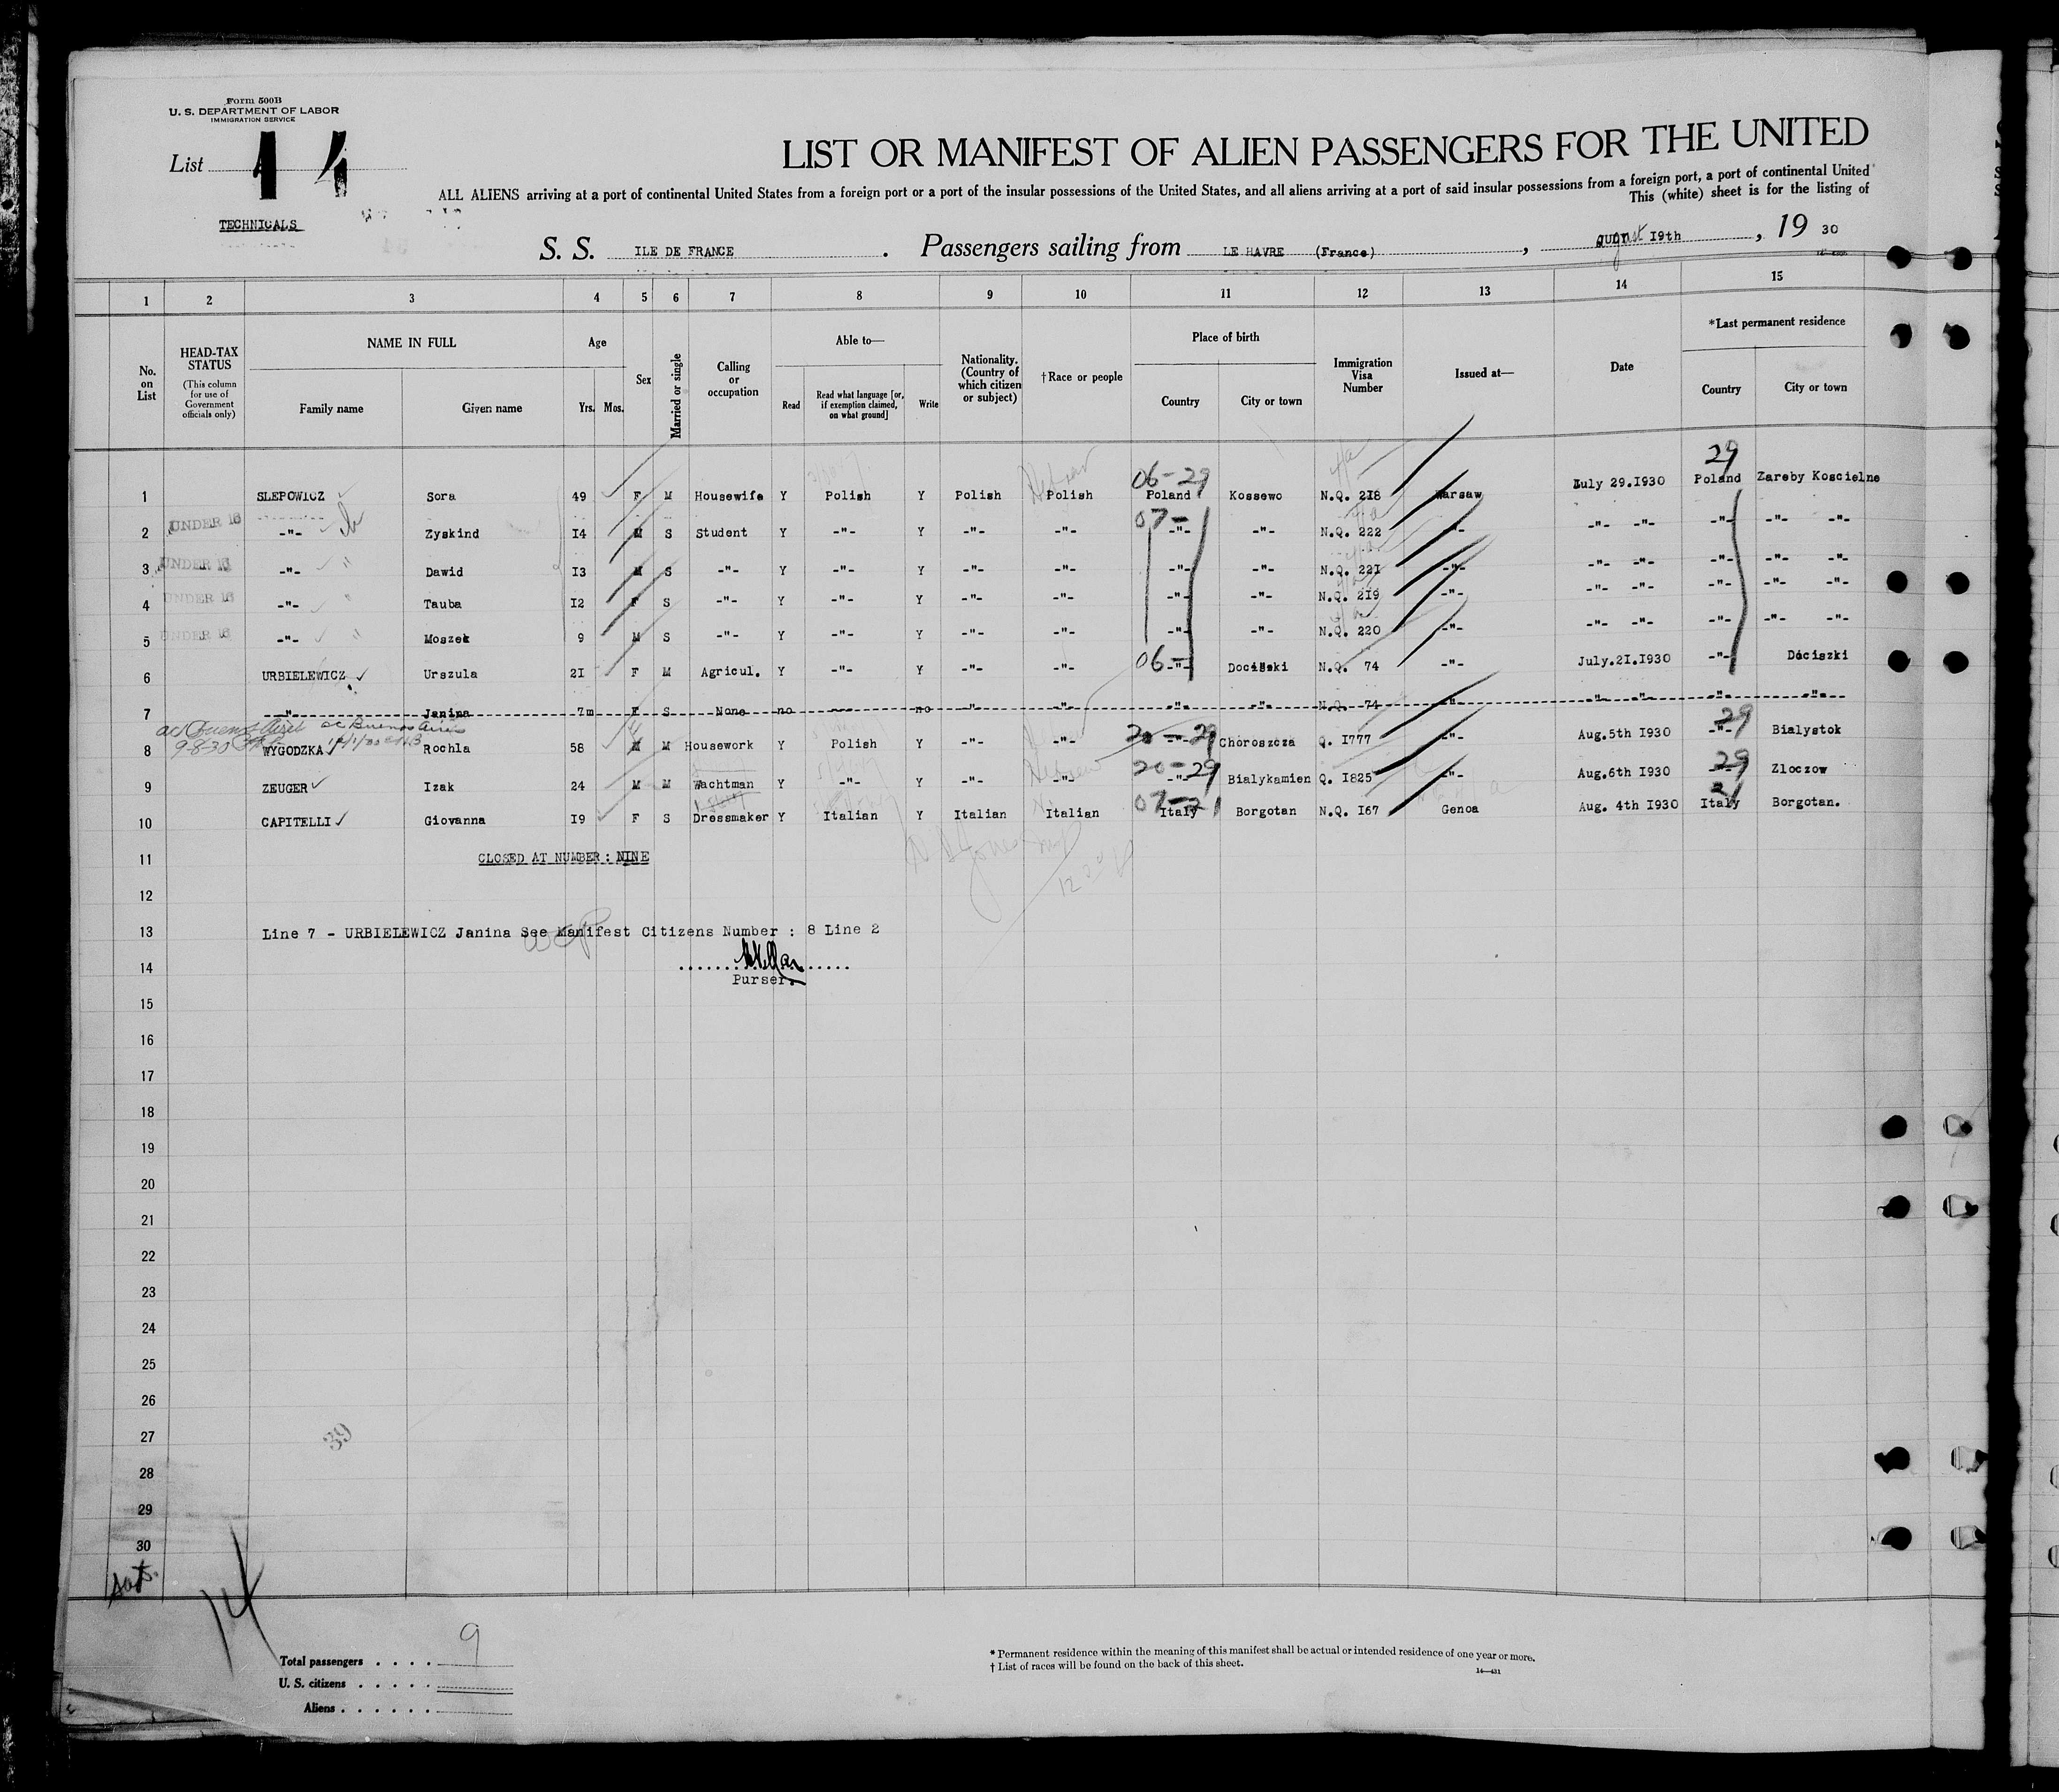 Form 500B
U. S. DEPARTMENT OF LABOR
IMMIGRATION SERVICE
List 14
TECHNICALS
LIST OR MANIFEST OF ALIEN PASSENGERS FOR THE UNITED
ALL ALIENS arriving at a port of continental United States from a foreign port or a port of the insular possessions of the United States, and all aliens arriving at a port of said insular possessions from a foreign port, a port of continental United
This (white) sheet is for the listing of
S. S. ILE DE FRANCE. Passengers sailing from LE HAVRE (France), august 19th, 19 30
1 2 3 4 5 6 7 8 9 10 11 12 13 14 15
No. on List
HEAD-TAX STATUS (This column for use of Government officials only)
NAME IN FULL Family name Given name
Age Yrs. Mos.
Sex
Married or single
Calling or occupation
Able to— Read Read what language [or, if exemption claimed, on what ground] Write
Nationality. (Country of which citizen or subject)
†Race or people
Place of birth Country City or town
Immigration Visa Number
Issued at—
Date
*Last permanent residence Country City or town
06-29 29
1 SLEPOWICZ Sora 49 F M Housewife Y Polish Y Polish Hebrew Polish Poland Kossewo N.Q. 218 Warsaw July 29.1930 Poland Zareby Koscielne
07-
2 UNDER 16 -"- Zyskind I4 M S Student Y -"- Y -"- -"- -"- -"- N.Q. 222 -"- -"- -"- -"- -"- -"-
3 UNDER 16 -"- Dawid I3 M S -"- Y -"- Y -"- -"- -"- -"- N.Q. 22I -"- -"- -"- -"- -"- -"-
4 UNDER 16 -"- Tauba I2 F S -"- Y -"- Y -"- -"- -"- -"- N.Q. 2I9 -"- -"- -"- -"- -"- -"-
5 UNDER 16 -"- Moszek 9 M S -"- Y -"- Y -"- -"- -"- -"- N.Q. 220 -"- -"- -"- -"- -"- -"-
06-
6 URBIELEWICZ Urszula 2I F M Agricul. Y -"- Y -"- -"- -"- Dociszki N.Q. 74 -"- July.2I.I930 -"- Dociszki
7 -"- Janina 7m F S None no --- no -"- -"- -"- -"- N.Q. 74 -"- -"- -"- -"- -"-
ac Buenos Aires ac Buenos Aires
9-8-30
20-29 29
8 WYGODZKA Rochla 58 M M Housework Y Polish Y -"- -"- -"- Choroszcza Q. I777 -"- Aug.5th I930 -"- Bialystok
Hebrew 20-29 29
9 ZEUGER Izak 24 M M Wachtman Y -"- Y -"- -"- -"- Bialykamien Q. I825 -"- Aug.6th I930 -"- Zloczow
07-21 21
10 CAPITELLI Giovanna I9 F S Dressmaker Y Italian Y Italian Italian Italy Borgotan N.Q. I67 Genoa Aug. 4th I930 Italy Borgotan.
11 CLOSED AT NUMBER : NINE
12
13 Line 7 - URBIELEWICZ Janina See Manifest Citizens Number : 8 Line 2
14
Purser.
15
16
17
18
19
20
21
22
23
24
25
26
27
39
28
29
30
Sat.
14
Total passengers . . . . 9
U. S. citizens . . . . .
Aliens . . . . . .
* Permanent residence within the meaning of this manifest shall be actual or intended residence of one year or more.
† List of races will be found on the back of this sheet.
14—431